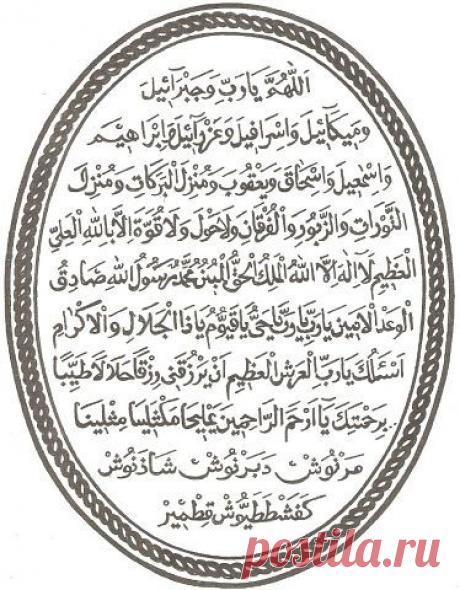 اَللّٰهُمَّ يَارَبِّ وَجِبْرَآئِيلَ
وَمِيكَآئِيلَ وَاِسْرَافِيلَ وَعَزْرَآئِيلَ وَاِبْرَاهِيمَ
وَاِسْمٰعِيلَ وَاِسْحَاقَ وَيَعْقُوبَ وَمُنْزِلَ الْبَرَكَاتِ وَمُنْزِلَ
التَّوْرَاتِ وَالزَّبُورِ وَالْفُرْقَانِ وَلَاحَوْلَ وَلَا قُوَّةَ اِلَّا بِاللّٰهِ الْعَلِىِّ
الْعَظِيمِ لَآ اِلٰهَ اِلَّا اللّٰهُ الْمَلِكُ الْحَقُّ الْمُبِينُ مُحَمَّدٌ رَسُولُ اللّٰهِ صَادِقُ
الْوَعْدِ الْاَمِينِ يَارَبِّ يَارَبِّ يَاحَىُّ يَاقَيُّومُ يَاذَا الْجَلَالِ وَالْاِكْرَامِ
اَسْئَلُكَ يَارَبَّ الْعَرْشِ الْعَظِيمِ اَنْ يَرْزُقَنِى رِزْقًا حَلَالًا طَيِّبًا
بِرَحْمَتِكَ يَآ اَرْحَمَ الرَّاحِمِينَ يَمْلِيخَا مَكْثَلِينَا مِثْلِينَا
مَرْنُوشْ دَبَرْنُوشْ شَاذَنُوشْ
كَفَشْطَطَيُّوشْ قِطْمِيرْ
postila.ru